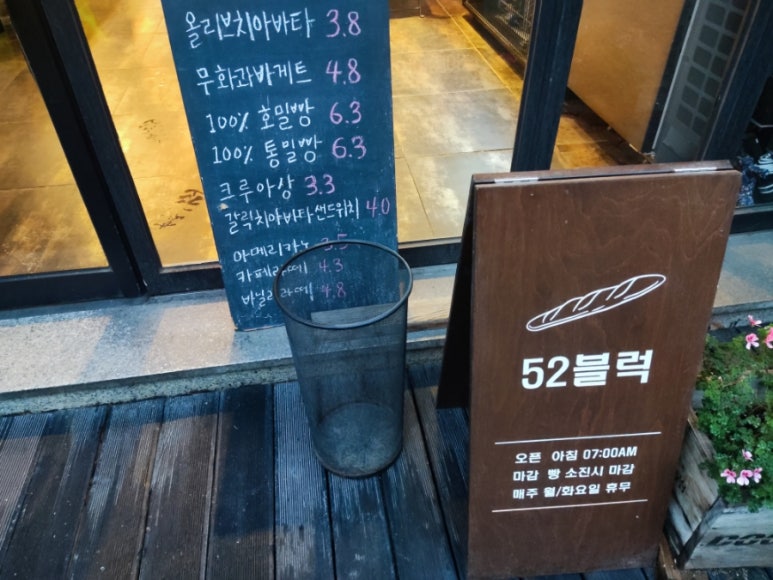 올리브치아바타 3.8
무화과바게트 4.8
100% 호밀빵 6.3
100% 통밀빵 6.3
크루아상 3.3
갈릭치아바타샌드위치 4.0
아메리카노 3.5
카페라떼 4.3
바닐라라떼 4.8
52블럭
오픈 아침 07:00AM
마감 빵 소진시 마감
매주 월/화요일 휴무